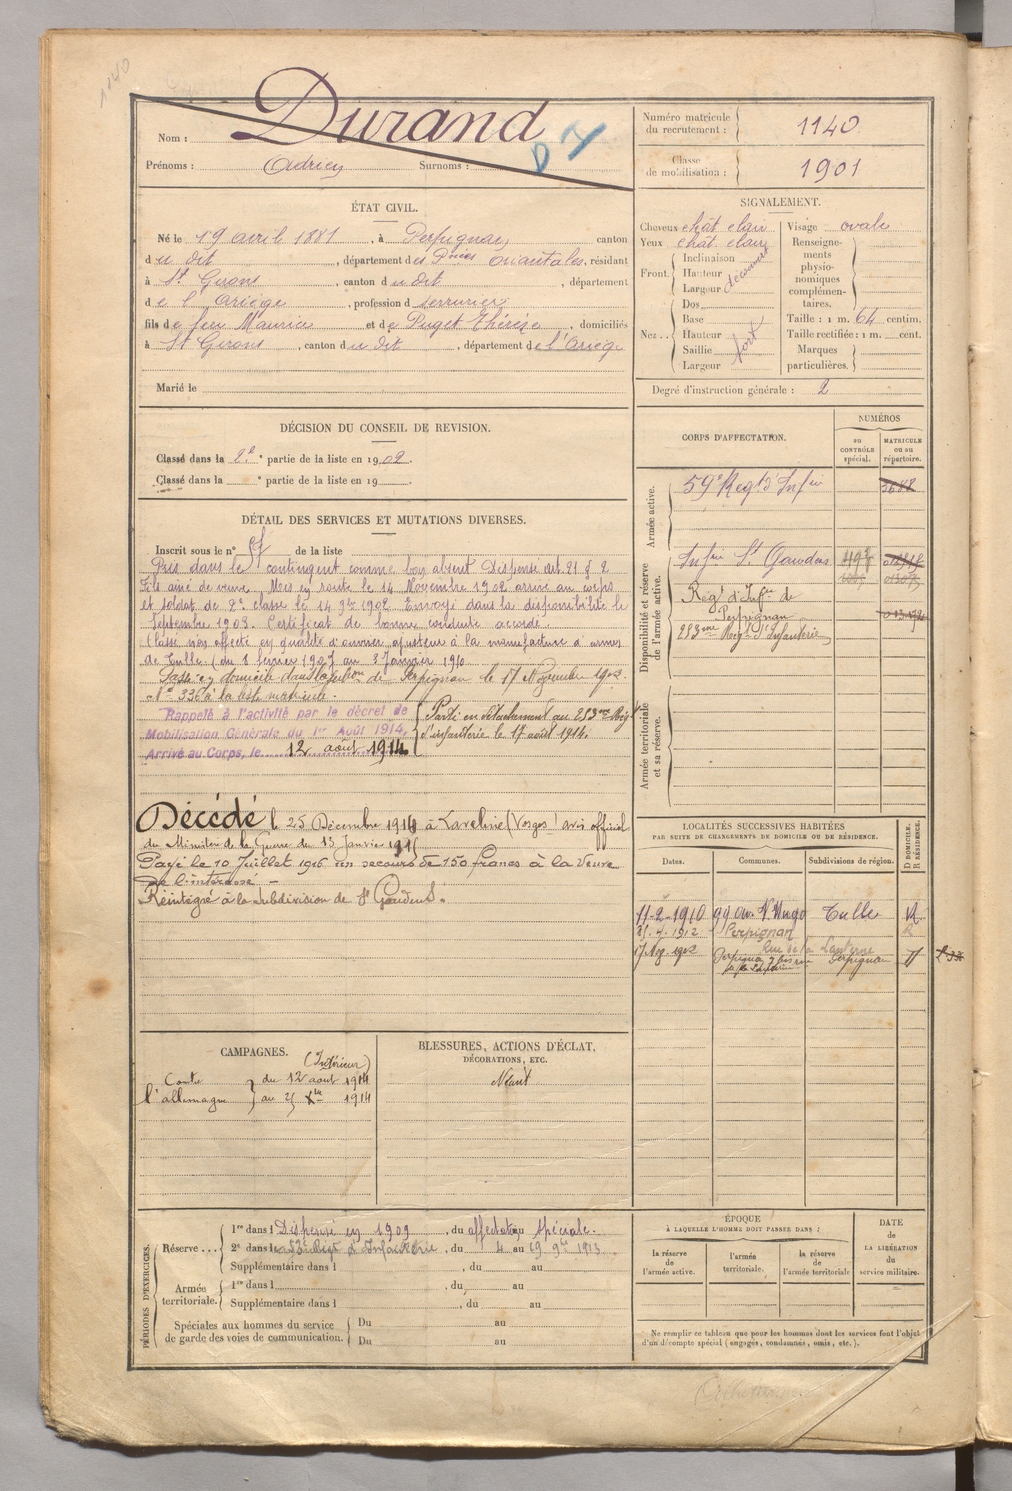 1140
Nom : Durand
Prénoms : Adrien Surnoms :
Numéro matricule du recrutement : 1140
Classe de mobilisation : 1901
ÉTAT CIVIL.
Né le 19 avril 1881, à Perpignan canton
du dit, département des Pnées Orientales, résidant
à St Girons, canton du dit, département
de l'Ariège, profession de serrurier
fils de feu Maurice et de Puget Thérèse, domiciliés
à St Girons, canton du dit, département de l'Ariège
Marié le
SIGNALEMENT.
Cheveux chât clair
Yeux chât. clair
Front. Inclinaison
Hauteur
Largeur
découvert
Nez.. Dos
Base
Hauteur
Saillie
Largeur
fort
Visage ovale
Renseignements physionomiques complémentaires.
Taille : 1 m. 64 centim.
Taille rectifiée : 1 m. cent.
Marques particulières.
Degré d'instruction générale : 2
DÉCISION DU CONSEIL DE REVISION.
Classé dans la 2e partie de la liste en 1902.
Classé dans la partie de la liste en 19
DÉTAIL DES SERVICES ET MUTATIONS DIVERSES.
Inscrit sous le n° de la liste
Pris dans le contingent comme bon absent Dispensé art. 21 § 2
Fils aîné de veuve. Mis en route le 14 Novembre 1902 arrivé au corps
et soldat de 2e classe le 14 9bre 1902. Envoyé dans la disponibilité le
Septembre 1903. Certificat de bonne conduite accordé.
Classé non affecté en qualité d'ouvrier ajusteur à la manufacture d'armes
de Tulle. (du 1 février 1907 au 3 Janvier 1910
Passé en domicile dans la subon de Perpignan le 17 Novembre 1912.
N° 336 à la liste matricule.
Rappelé à l'activité par le décret de
Mobilisation Générale du 1er Août 1914,
Arrivé au Corps, le 12 août 1914
Parti en détachement au 283me Régt
d'infanterie le 17 août 1914.
Décédé le 25 Décembre 1914 à Laveline (Vosges) avis officiel
du Ministère de la Guerre du 13 Janvier 1915
Payé le 10 Juillet 1916 un secours de 150 francs à la Veuve
de l'intéressé -
Réintégré à la subdivision de St Gaudens.
CORPS D'AFFECTATION.
NUMÉROS
au CONTRÔLE spécial.
MATRICULE ou au répertoire.
Armée active.
59e Regt d'Infie
Disponibilité et réserve de l'armée active.
Infie St Gaudens
Regt d'Infie de
Perpignan
283me Régt d'Infanterie
Armée territoriale et sa réserve.
LOCALITÉS SUCCESSIVES HABITÉES
PAR SUITE DE CHANGEMENTS DE DOMICILE OU DE RÉSIDENCE.
Dates. Communes. Subdivisions de région. D DOMICILE. R RÉSIDENCE.
11-2-1910 99 av. V. Hugo Tulle R
21.7.1912 Perpignan R
17 Nov. 1912 Perpignan 7 bis rue Perpignan
CAMPAGNES.
(Intérieur)
Contre l'allemagne du 12 aout 1914
au 25 Xbre 1914
BLESSURES, ACTIONS D'ÉCLAT,
DÉCORATIONS, ETC.
Néant
PÉRIODES D'EXERCICES.
Réserve... 1re dans l Dispensé en 1909, du affectation spéciale.
2e dans le Régt d'Infanterie, du 4 au 19 9bre 1913.
Supplémentaire dans l, du au
Armée territoriale. 1re dans l, du au
Supplémentaire dans l, du au
Spéciales aux hommes du service de garde des voies de communication. Du au
Du au
ÉPOQUE
À LAQUELLE L'HOMME DOIT PASSER DANS :
la réserve de l'armée active.
l'armée territoriale.
la réserve de l'armée territoriale
DATE de LA LIBÉRATION du service militaire.
Ne remplir ce tableau que pour les hommes dont les services font l'objet
d'un décompte spécial (engagés, condamnés, omis, etc.).